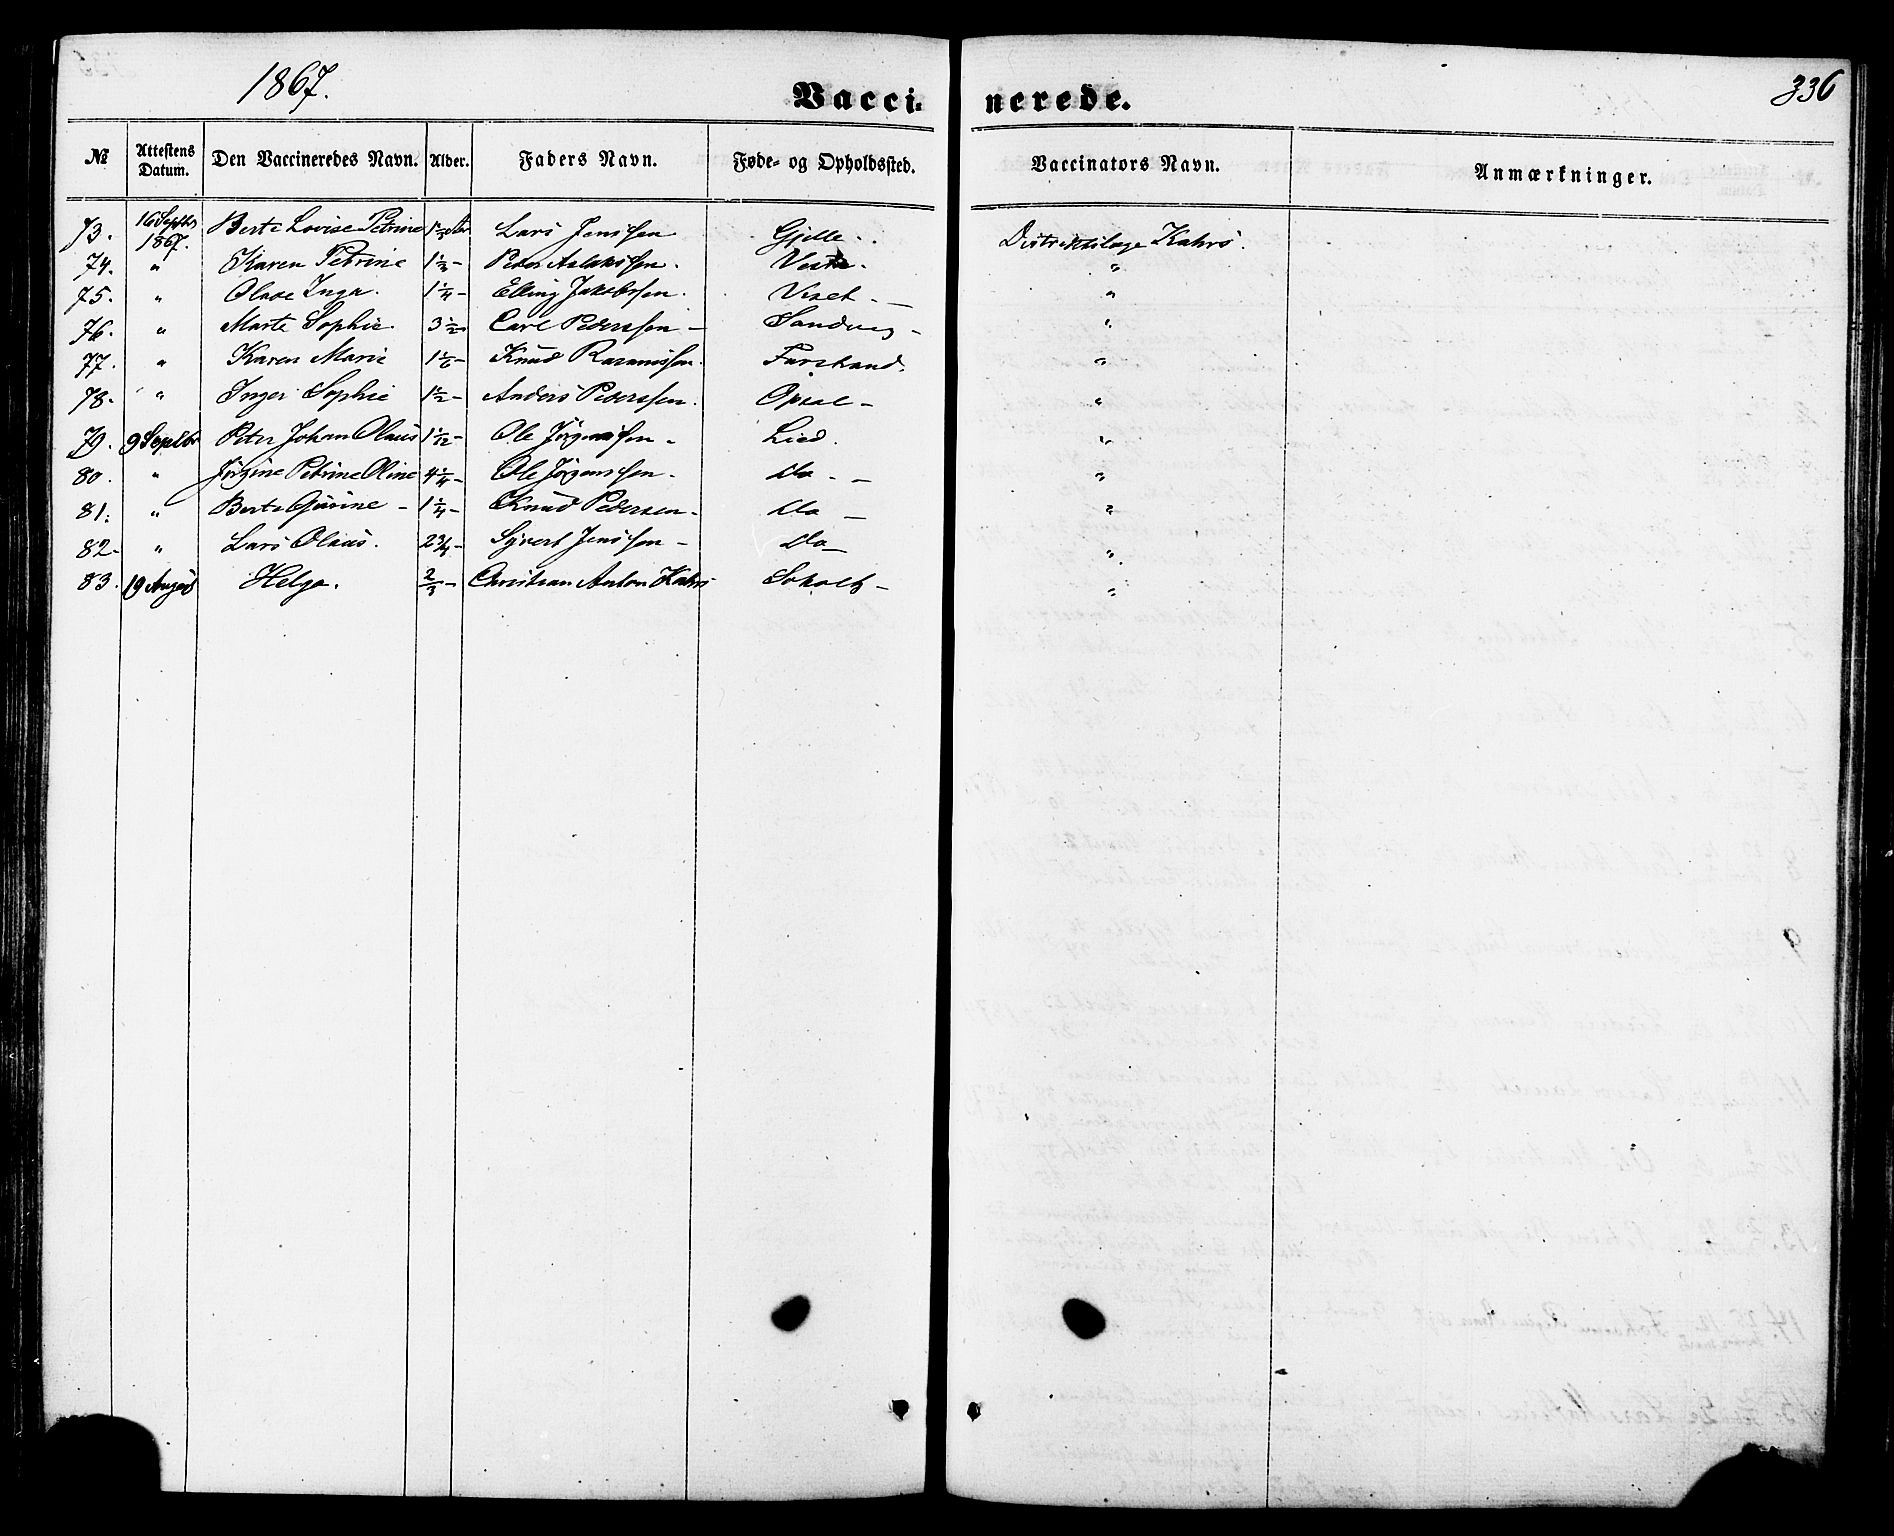 1867.
Vaccinerede.
336
№ Attestens Datum. Den Vaccineredes Navn. Alder. Faders Navn. Føde- og Opholdssted. Vaccinators Navn. Anmærkninger.
73. 16 Septbr 1867. Berte Lovise Petrine 1 1/3 Aar Lars Jenssen Gjelle. Distriktslæge Kahrs.
74. " Karen Petrine 1 1/3 - Peter Aslakssen. "
75. " Olave Inga. 1 1/4 - Elling Jakobssen. Viset. - "
76. " Marte Sophie. 3 1/2 - Carl Pederssen - Sandvig - "
77. " Karen Marie 1 1/6 - Knud Rasmussen. Farstand. "
78. " Inger Sophie 1 1/2 - Anders Pederssen. Opsal - "
79. 9 Septbr Peter Johan Olaus 1 1/12 - Ole Jörgenssen - Lied. "
80. " Jörgine Petrine Oline 4 1/4 - Ole Jörgenssen - do - - "
81. " Berte Gurine - 1 1/4 - Knud Pedersen - do - "
82 - " Lars Olaus. 2 3/4 - Sjvert Jenssen - do - "
83. 19 August Helga. 2/3 - Christian Anton Kahrs Soholt - "